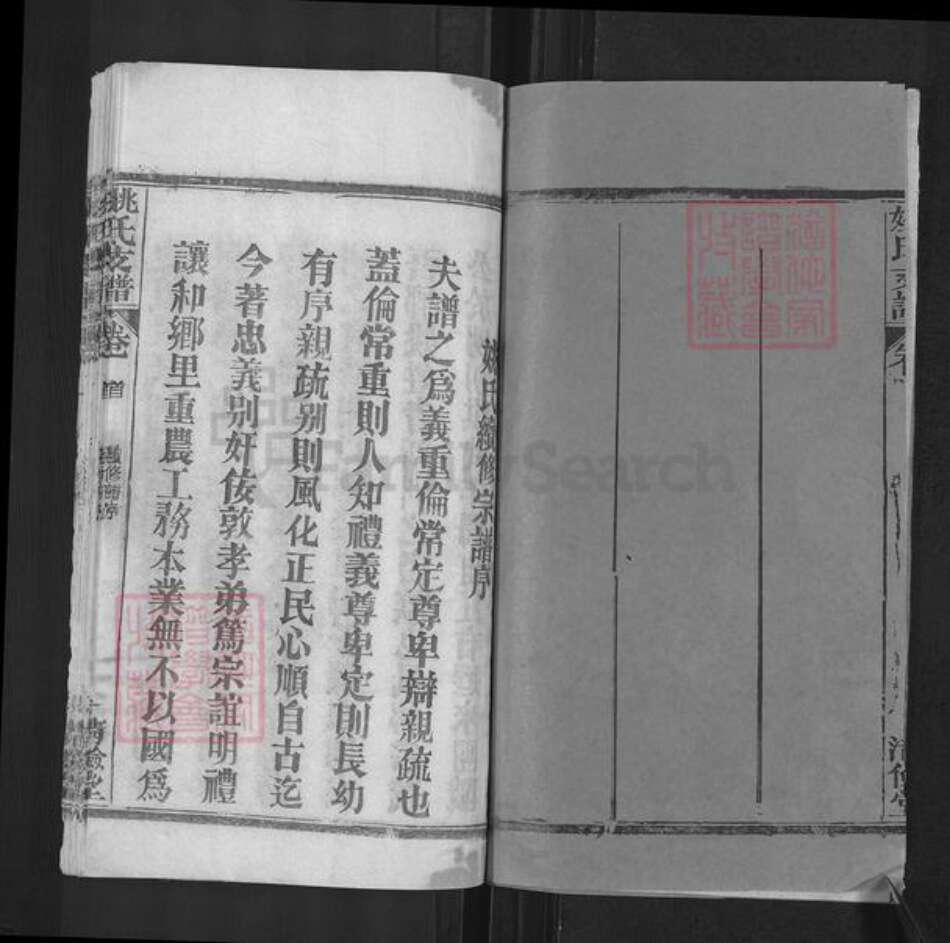 姚氏續修宗譜序
夫譜之爲義重倫常定尊卑辯親疏也
蓋倫常重則人知禮義尊卑定則長幼
有序親疏别則風化正民心順自古迄
今著忠義别奸佞敦孝弟篤宗誼明禮
讓和鄉里重農工務本業無不以國爲
姚氏支譜
卷首
FamilySearch